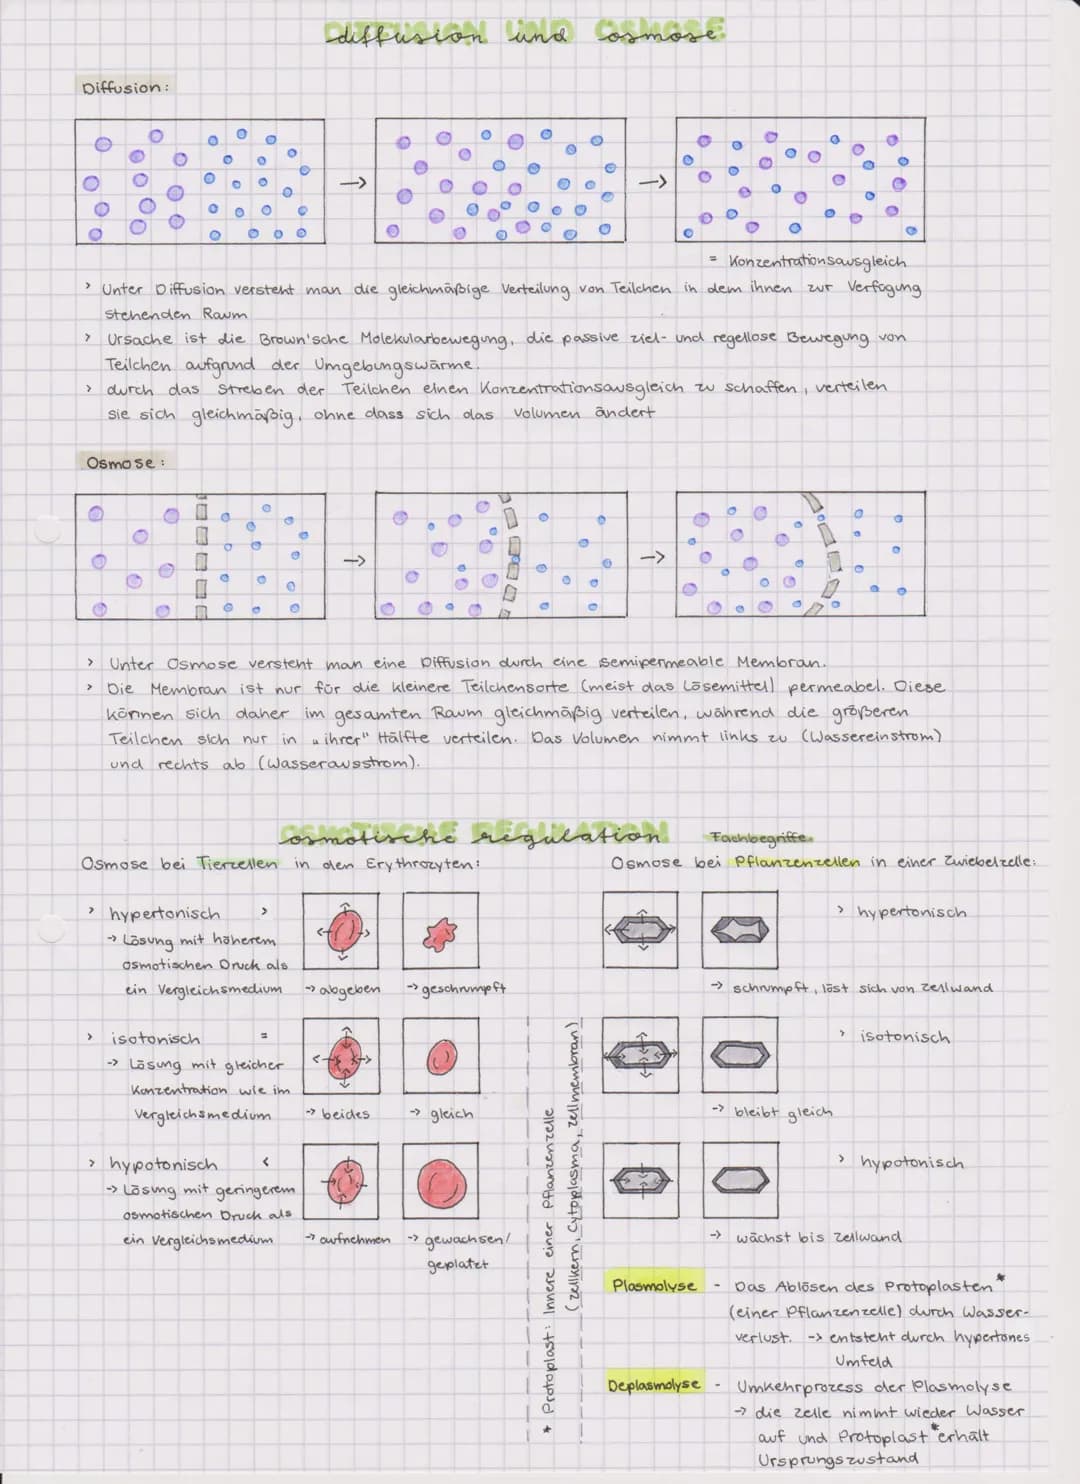 diffusion und osmose
Diffusion:
= Konzentrationsausgleich
> Unter Diffusion versteht man die gleichmäßige Verteilung von Teilchen in dem ihnen zur Verfügung
stehenden Raum
> Ursache ist die Brown'sche Molekularbewegung, die passive ziel- und regellose Bewegung von
Teilchen aufgrund der Umgebungswärme.
> durch das Streben der Teilchen einen Konzentrationsausgleich zu schaffen, verteilen
sie sich gleichmäßig, ohne dass sich das Volumen ändert
Osmose:
> Unter Osmose versteht man eine Diffusion durch eine semipermeable Membran.
> Die Membran ist nur für die kleinere Teilchensorte (meist das Lösemittel) permeabel. Diese
können sich daher im gesamten Raum gleichmäßig verteilen, während die größeren
Teilchen sich nur in „ihrer" Hälfte verteilen. Das Volumen nimmt links zu (Wassereinstrom)
und rechts ab (Wasserausstrom).
osmotische regulation
Fachbegriffe.
Osmose bei Tierzellen in den Erythrozyten:
> hypertonisch >
→ Lösung mit höherem
osmotischen Druck als
ein Vergleichsmedium → abgeben → geschrumpft
> isotonisch =
→ Lösung mit gleicher
Konzentration wie im
Vergleichsmedium → beides → gleich
> hypotonisch <
→ Lösung mit geringerem
osmotischen Druck als
ein Vergleichsmedium → aufnehmen → gewachsen/
geplatzt
* Protoplast: Innere einer Pflanzenzelle
(Zellkern, Cytoplasma, Zellmembran)
Osmose bei Pflanzenzellen in einer Zwiebelzelle:
> hypertonisch
→ schrumpft, löst sich von Zellwand
> isotonisch
→ bleibt gleich
> hypotonisch
→ wächst bis Zellwand
Plasmolyse - Das Ablösen des Protoplasten*
(einer Pflanzenzelle) durch Wasser-
verlust. → entsteht durch hypertones
Umfeld
Deplasmolyse - Umkehrprozess der Plasmolyse
→ die Zelle nimmt wieder Wasser
auf und Protoplast* erhält
Ursprungszustand